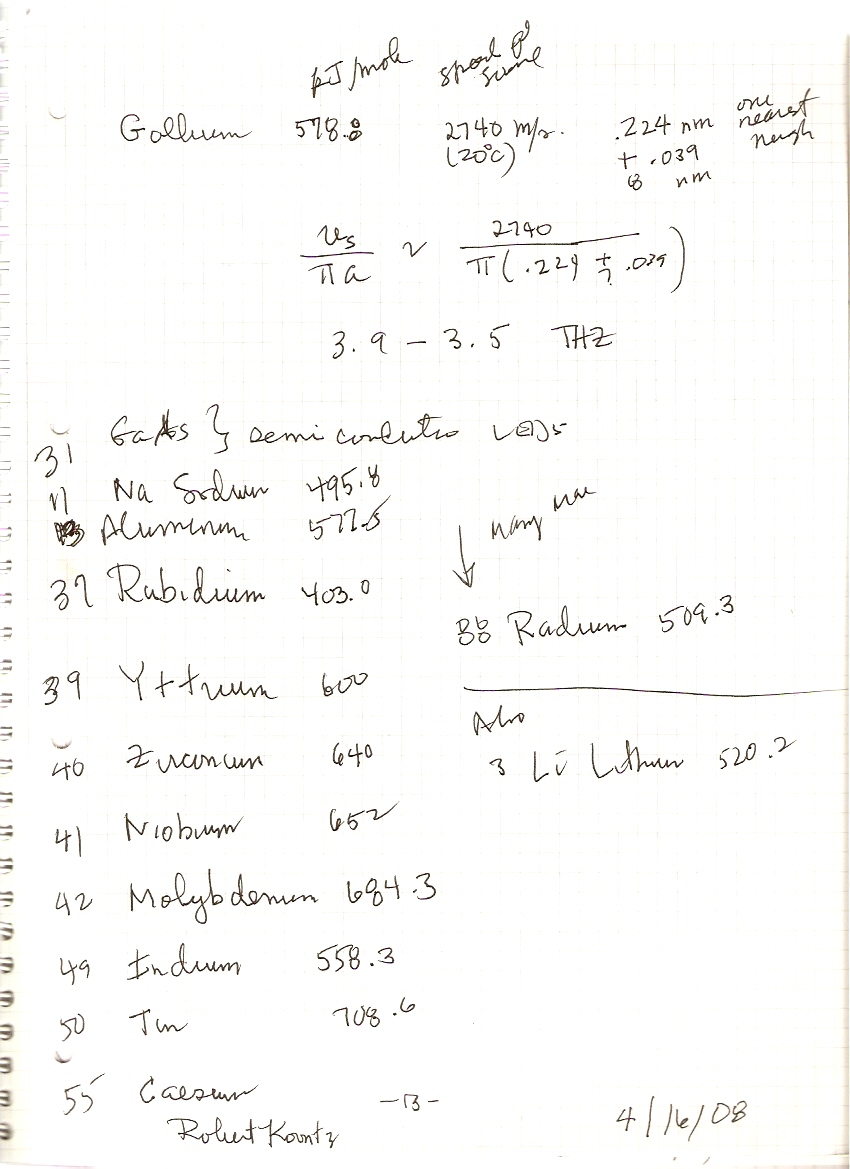 kJ/mole speed of sound
Gallium 578.8 2740 m/s. .224 nm one nearest neigh
(20°C) + .039
8 nm
vs / πa ~ 2740 / π(.224 + .039)
3.9 - 3.5 THZ
31 GaAs } semi conductor LEDs
11 Na Sodium 495.8
13 Aluminum 577.5
Many more
37 Rubidium 403.0
88 Radium 509.3
39 Yttrium 600
Also
40 Zirconium 640
3 Li Lithium 520.2
41 Niobium 652
42 Molybdenum 684.3
49 Indium 558.3
50 Tin 708.6
55 Caesium
-13-
Robert Koontz
4/16/08